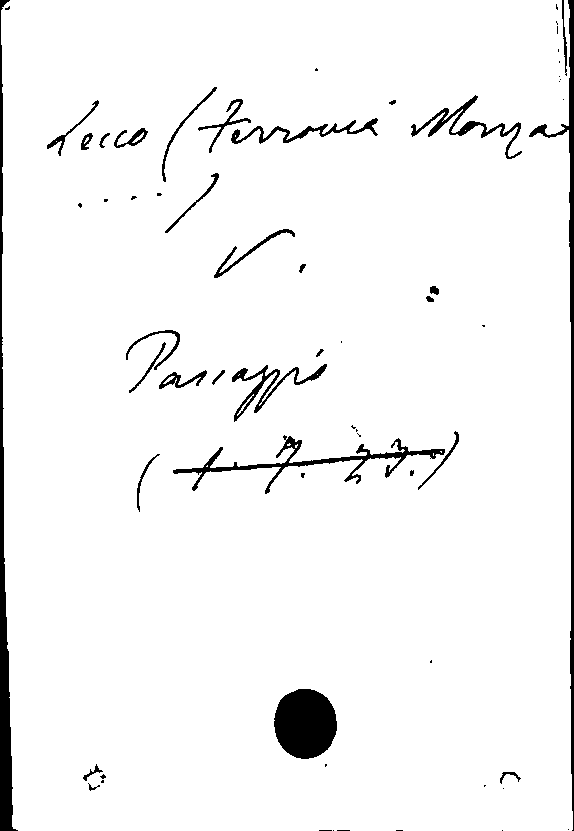 Lecco (Ferrovia Monza
....)
V.
Passaggio
(1. 7. 23.)